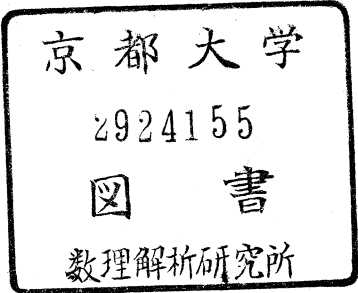 京都大学
2924155
図書
数理解析研究所